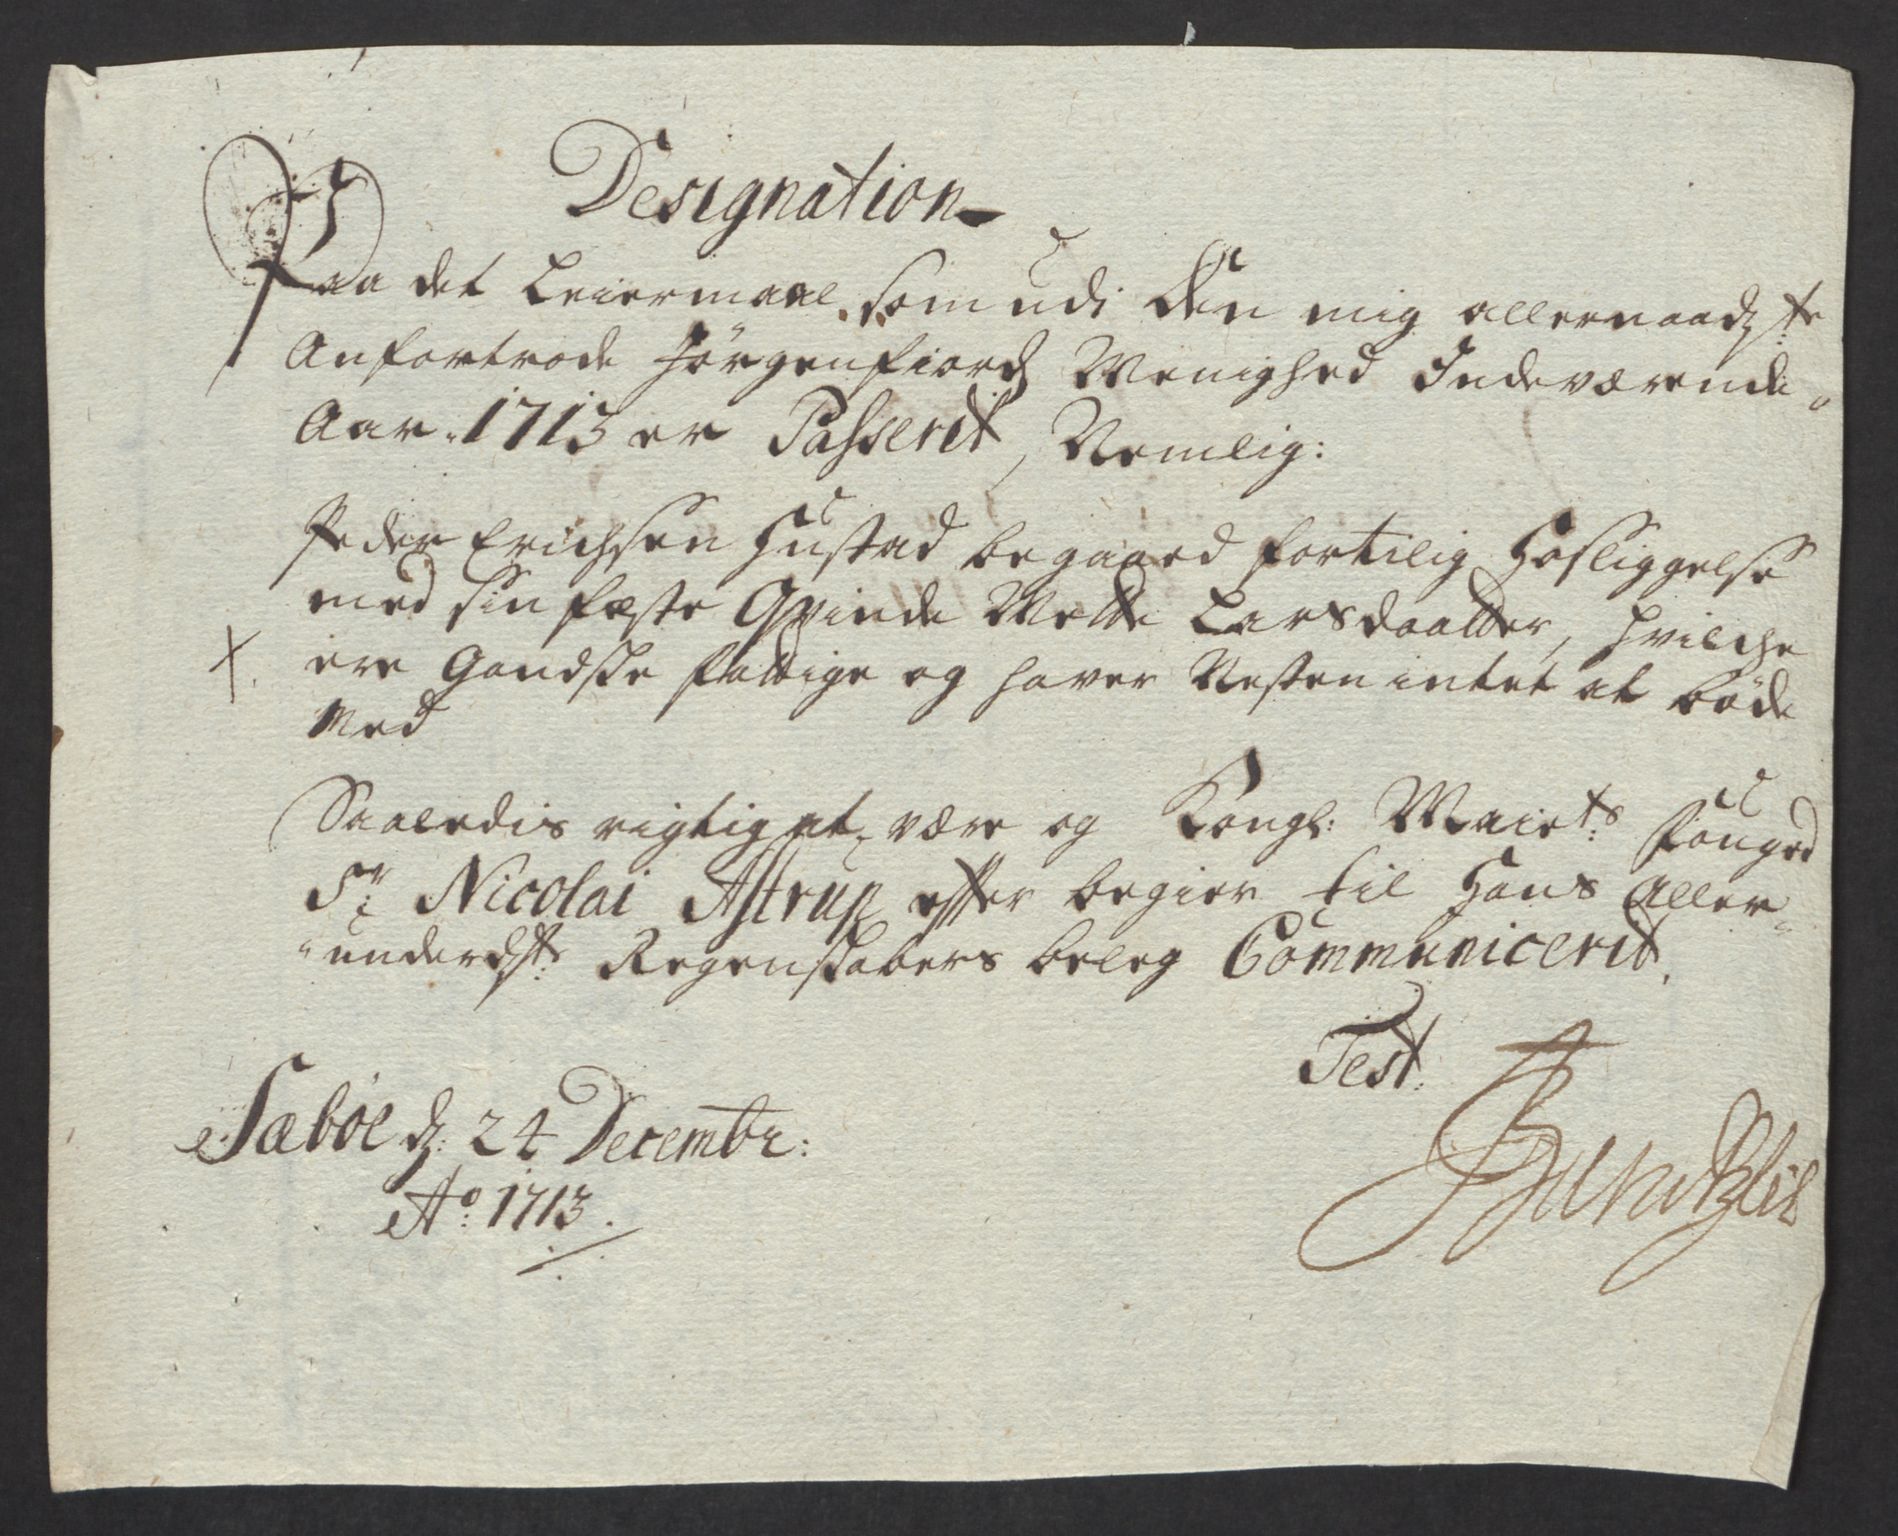 Designation
Paa det Leiermaal som udi den mig allernaadste
Anfortrode Jørgenfiords Menighed Indeværende
Aar 1713 er Passerit, Nemlig:
Peder Erichsen Hustad begaaed fortilig Hosliggelse
med sin feste Qvinde Mette Larsdaatter, hvilche
X. ere Gandske fattige og haver Nesten intet at bøde
Med
Saaledis rigtig at være og Kongl: Maiets: Fouged
Sr: Nicolai Astrup effter begier til Hans Aller-
underdst: Regenskabers beleg Communicerit.
Test:
Sæbøe d: 24 Decembr:
Ao: 1713.